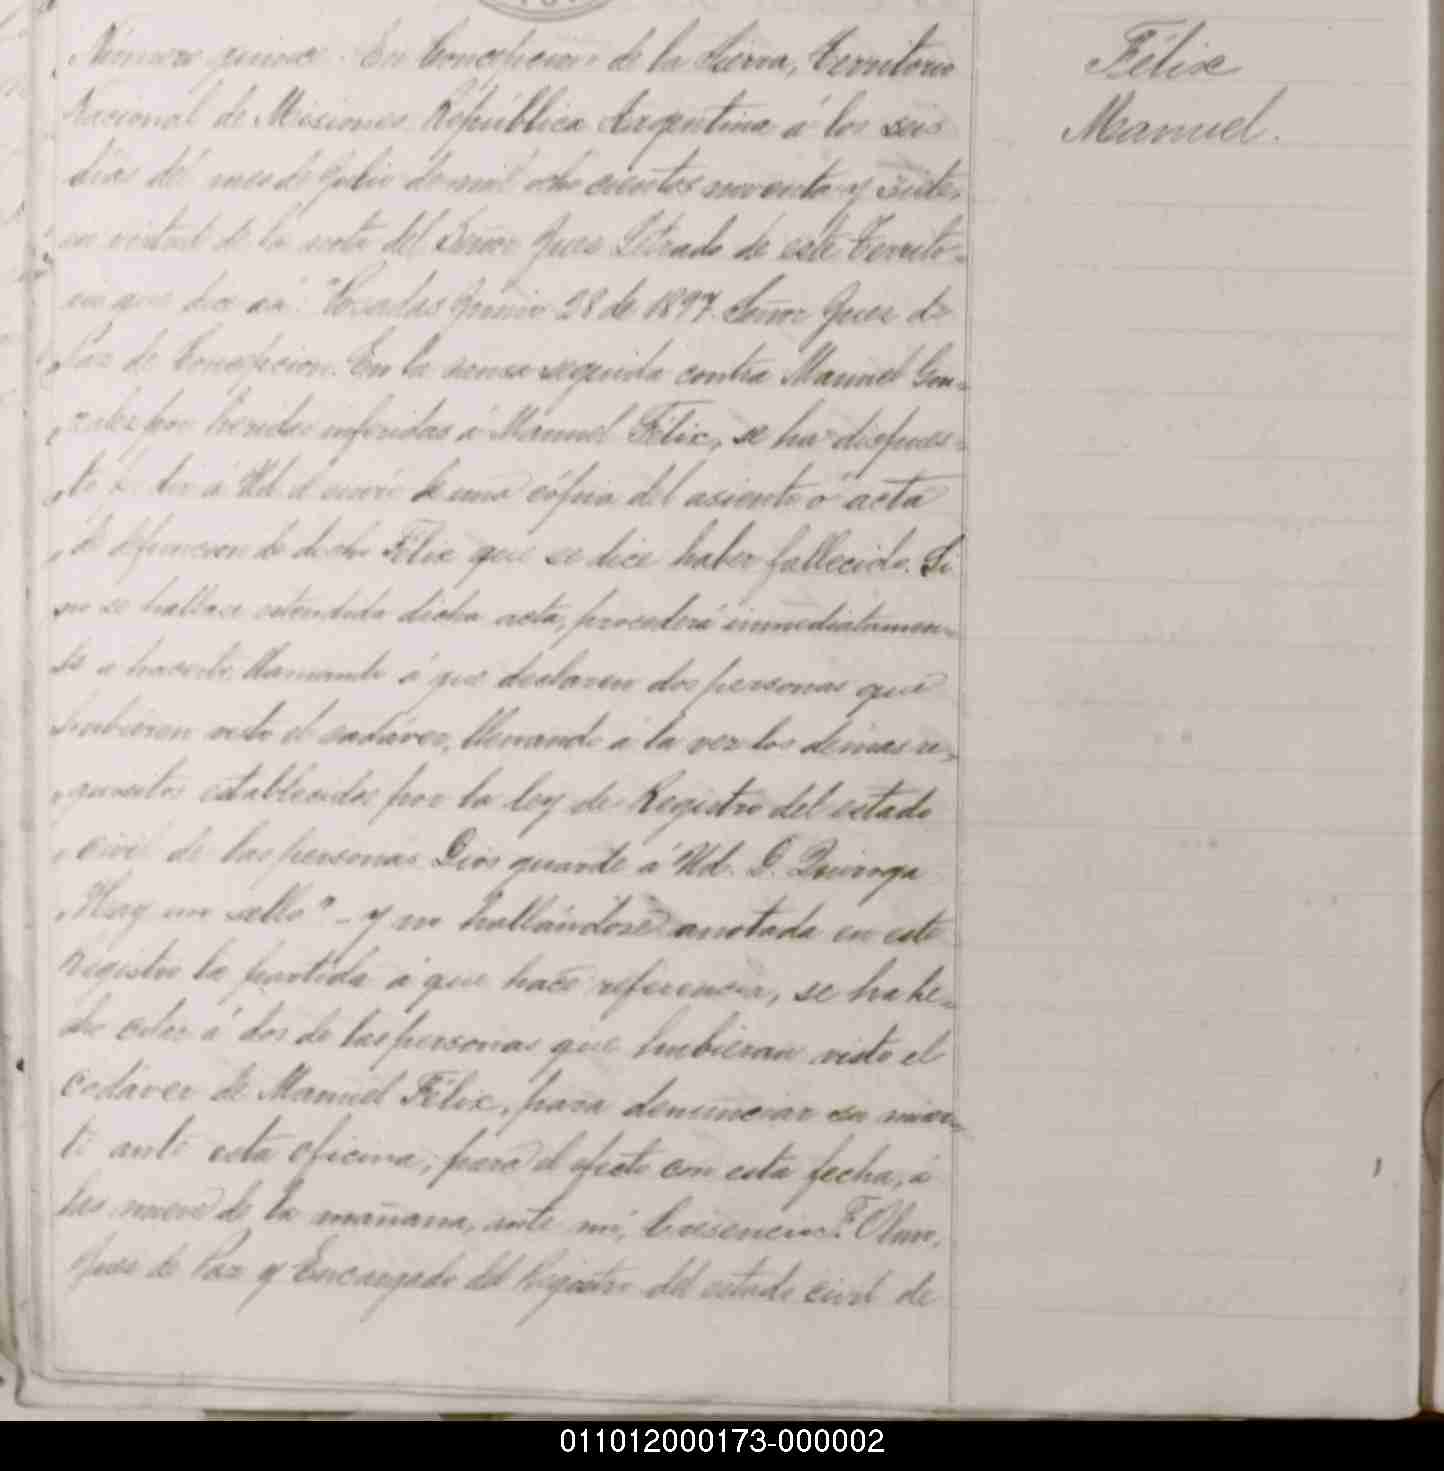 Número quince. En Concepcion de la Sierra, Territorio
Nacional de Misiones, República Argentina á los seis
dias del mes de Julio de mil ocho cientos noventa y siete,
en virtud de la nota del Señor Juez Letrado de este Territo-
rio que dice asi: "Posadas Junio 28 de 1897. Señor Juez de
Paz de Concepcion. En la causa seguida contra Manuel Gon-
zalez por heridas inferidas á Manuel Félix, se ha dispues-
to á Ud. de una cópia del asiento ó acta
de defuncion de dicho Félix que se dice haber fallecido. Si
no se hallase estendida dicha acta, procederá inmediatamen-
te a hacerlo, llamando á que declaren dos personas que
hubieren visto el cadáver, llenando á la vez los demas re-
quisitos establecidos por la ley de Registro del estado
civil de las personas. Dios guarde á Ud. D. Quiroga
"Hay un sello" - y no hallándose anotada en este
registro la partida á que hace referencia, se ha he-
cho citar á dos de las personas que hubieran visto el
cadáver de Manuel Félix, para denunciar su muer-
te ante esta oficina; para el efecto con esta fecha, á
las nueve de la mañana, ante mi, F.
Juez de Paz y Encargado del Registro del estado civil de
Félix
Manuel.
011012000173-000002